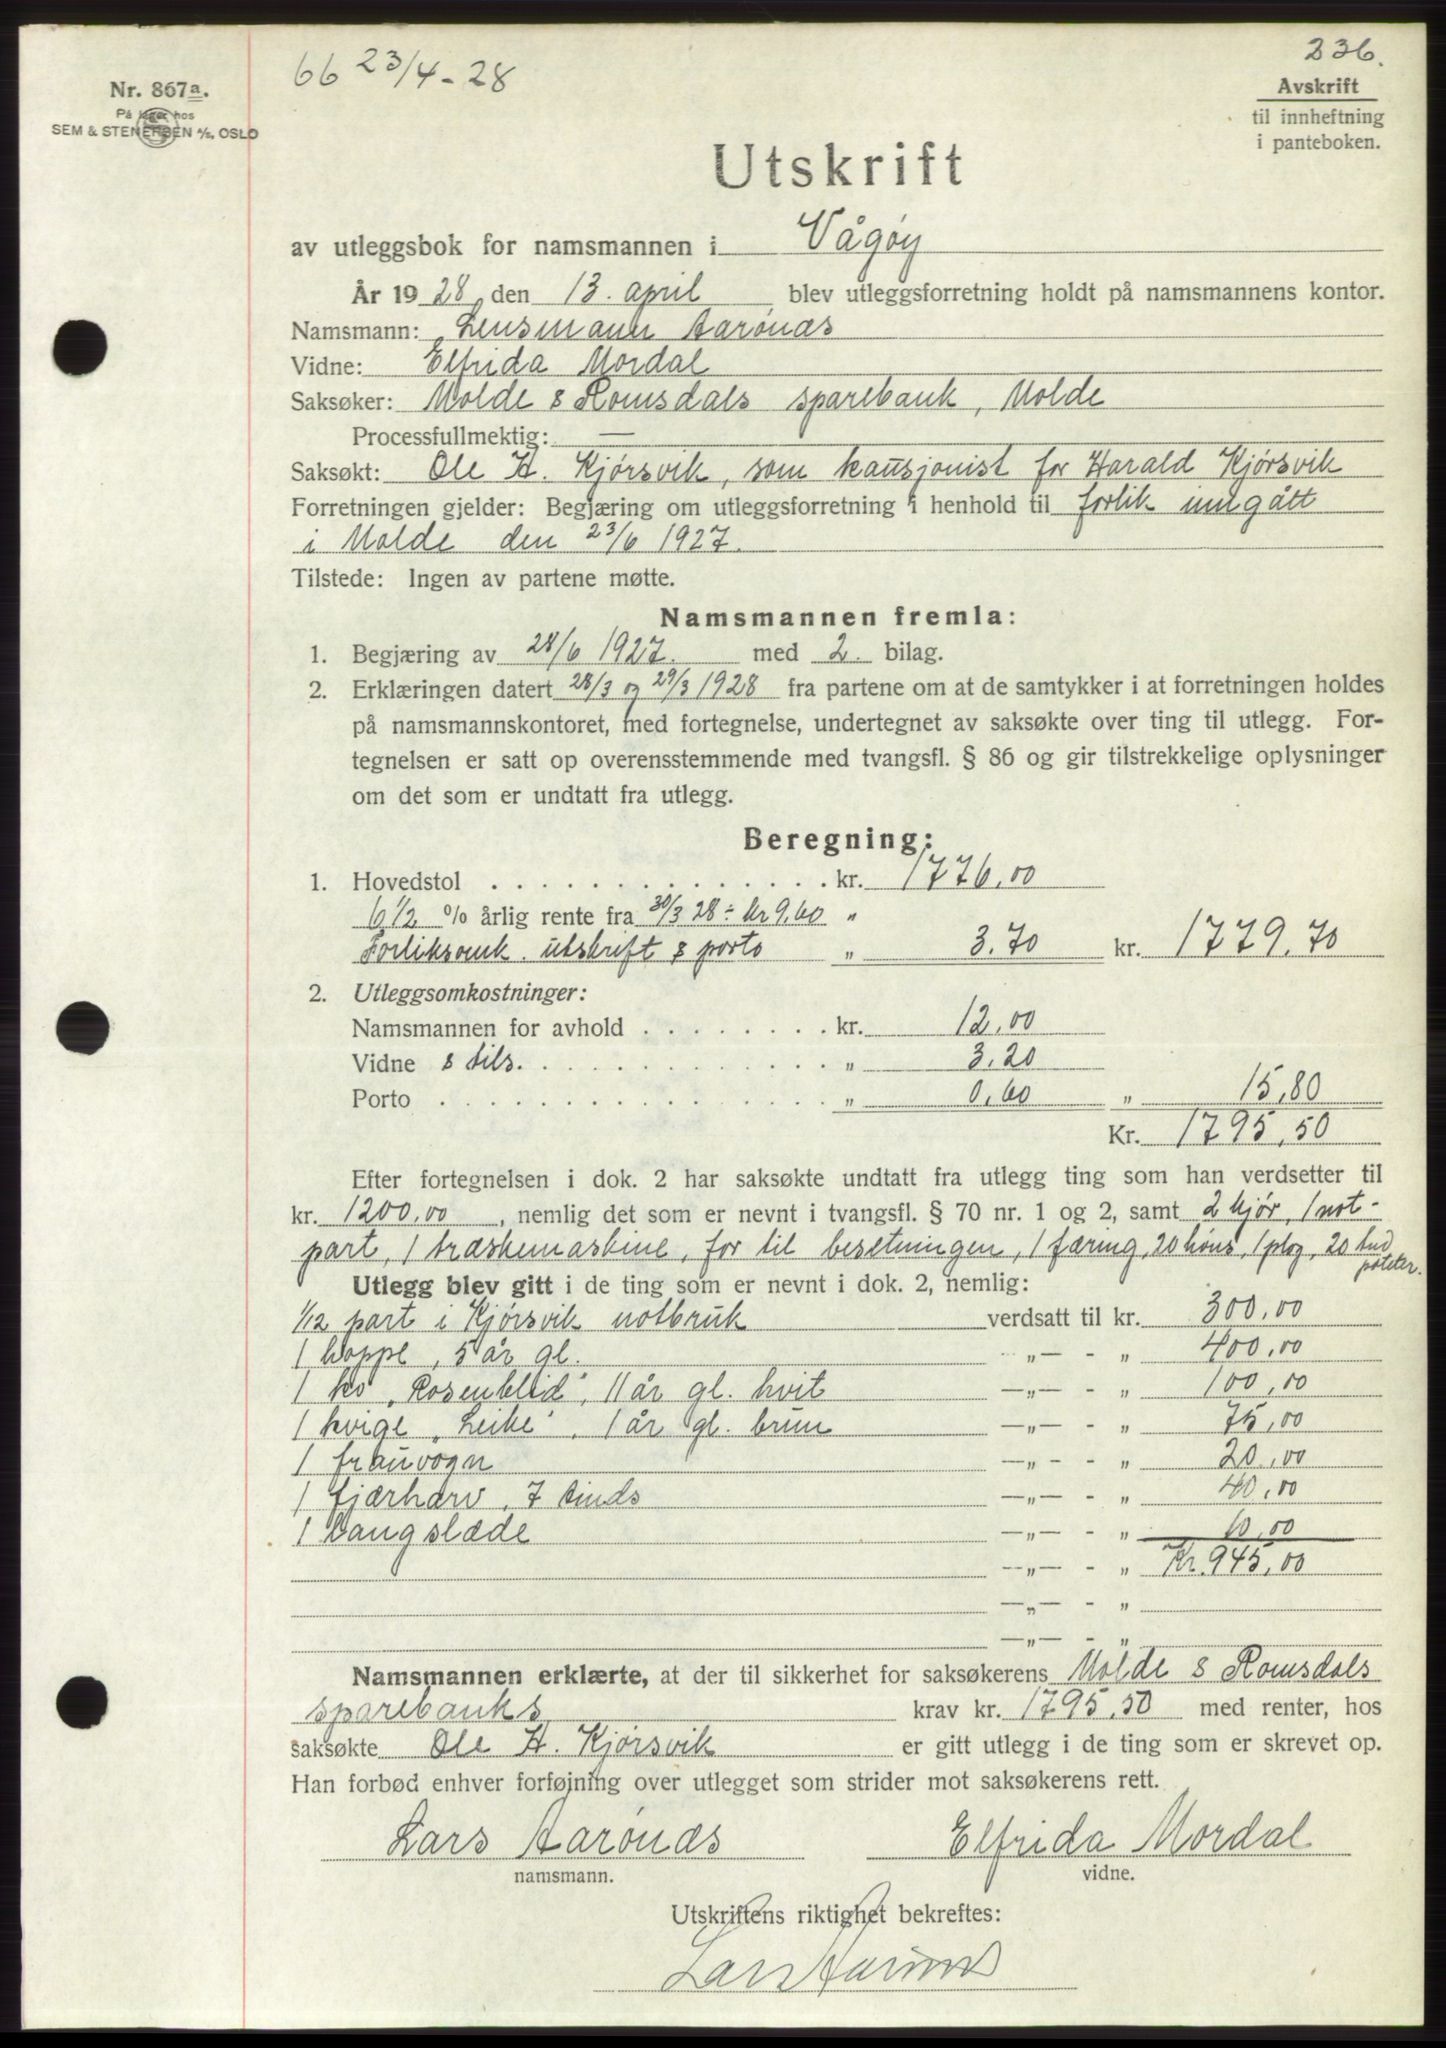 66 23/4-28
236.
Nr. 867a.
På lager hos
SEM & STENERSEN A/S, OSLO
Avskrift
til innheftning
i panteboken.
Utskrift
av utleggsbok for namsmannen i Vågøy
År 1928, den 13. april blev utleggsforretning holdt på namsmannens kontor.
Namsmann: Lensmann Aarønæs
Vidne: Elfrida Mordal
Saksøker: Molde & Romsdals sparebank, Molde
Processfullmektig: —
Saksøkt: Ole H. Kjørsvik, som kausjonist for Harald Kjørsvik
Forretningen gjelder: Begjæring om utleggsforretning i henhold til forlik inngått
i Molde den 23/6 1927.
Tilstede: Ingen av partene møtte.
Namsmannen fremla:
1. Begjæring av 28/6 1927. med 2. bilag.
2. Erklæringen datert 28/3 og 29/3 1928 fra partene om at de samtykker i at forretningen holdes
på namsmannskontoret, med fortegnelse, undertegnet av saksøkte over ting til utlegg. For-
tegnelsen er satt op overensstemmende med tvangsfl. § 86 og gir tilstrekkelige oplysninger
om det som er undtatt fra utlegg.
Beregning:
1. Hovedstol . . . . . . . . . . . . . . kr. 1776,00
6 1/2 % årlig rente fra 30/3 28 ÷ kr 9,60 "
Forliksomk. utskrift & porto " 3.70 kr. 1779.70
2. Utleggsomkostninger:
Namsmannen for avhold . . . . . . . . kr. 12,00
Vidne & tils. . . . . . . . . . . . . . " 3.20
Porto . . . . . . . . . . . . . . . . " 0,60 " 15,80
Kr. 1795,50
Efter fortegnelsen i dok. 2 har saksøkte undtatt fra utlegg ting som han verdsetter til
kr. 1200,00, nemlig det som er nevnt i tvangsfl. § 70 nr. 1 og 2, samt 2 kjør, 1 not-
part, 1 træskemaskine, for til besetningen, 1 færing, 20 høns, 1 plog, 20 tnd
poteter.
Utlegg blev gitt i de ting som er nevnt i dok. 2, nemlig:
1/12 part i Kjørsvik notbruk verdsatt til kr. 300,00
1 hoppe, 5 år gl. —"— - " 400,00
1 ko „Rosenblid", 11 år gl. hvit —"— - " 100,00
1 kvige „Leike", 1 år gl. brun —"— - " 75,00
1 frauvogn —"— - " 20,00
1 fjærharv, 7 tinds —"— - " 40,00
1 langslæde —"— - " 10,00
—"— - " Kr. 945,00
—"— - "
—"— - "
Namsmannen erklærte, at der til sikkerhet for saksøkerens Molde & Romsdals
sparebanks krav kr. 1795,50 med renter, hos
saksøkte Ole H. Kjørsvik er gitt utlegg i de ting som er skrevet op.
Han forbød enhver forføjning over utlegget som strider mot saksøkerens rett.
Lars Aarønæs Elfrida Mordal
namsmann. vidne.
Utskriftens riktighet bekreftes:
Lars Aarønæs